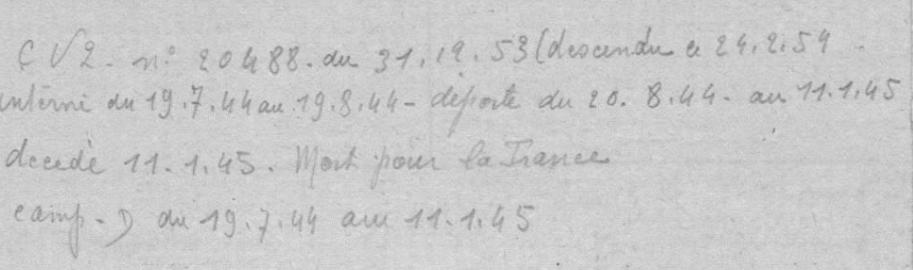 C V2. n° 20488. du 31.12.53 (descendu le 24.2.54.
interné du 19.7.44 au 19.8.44 - déporté du 20.8.44. au 11.1.45
decedé 11.1.45. Mort pour la France
camp. D du 19.7.44 au 11.1.45